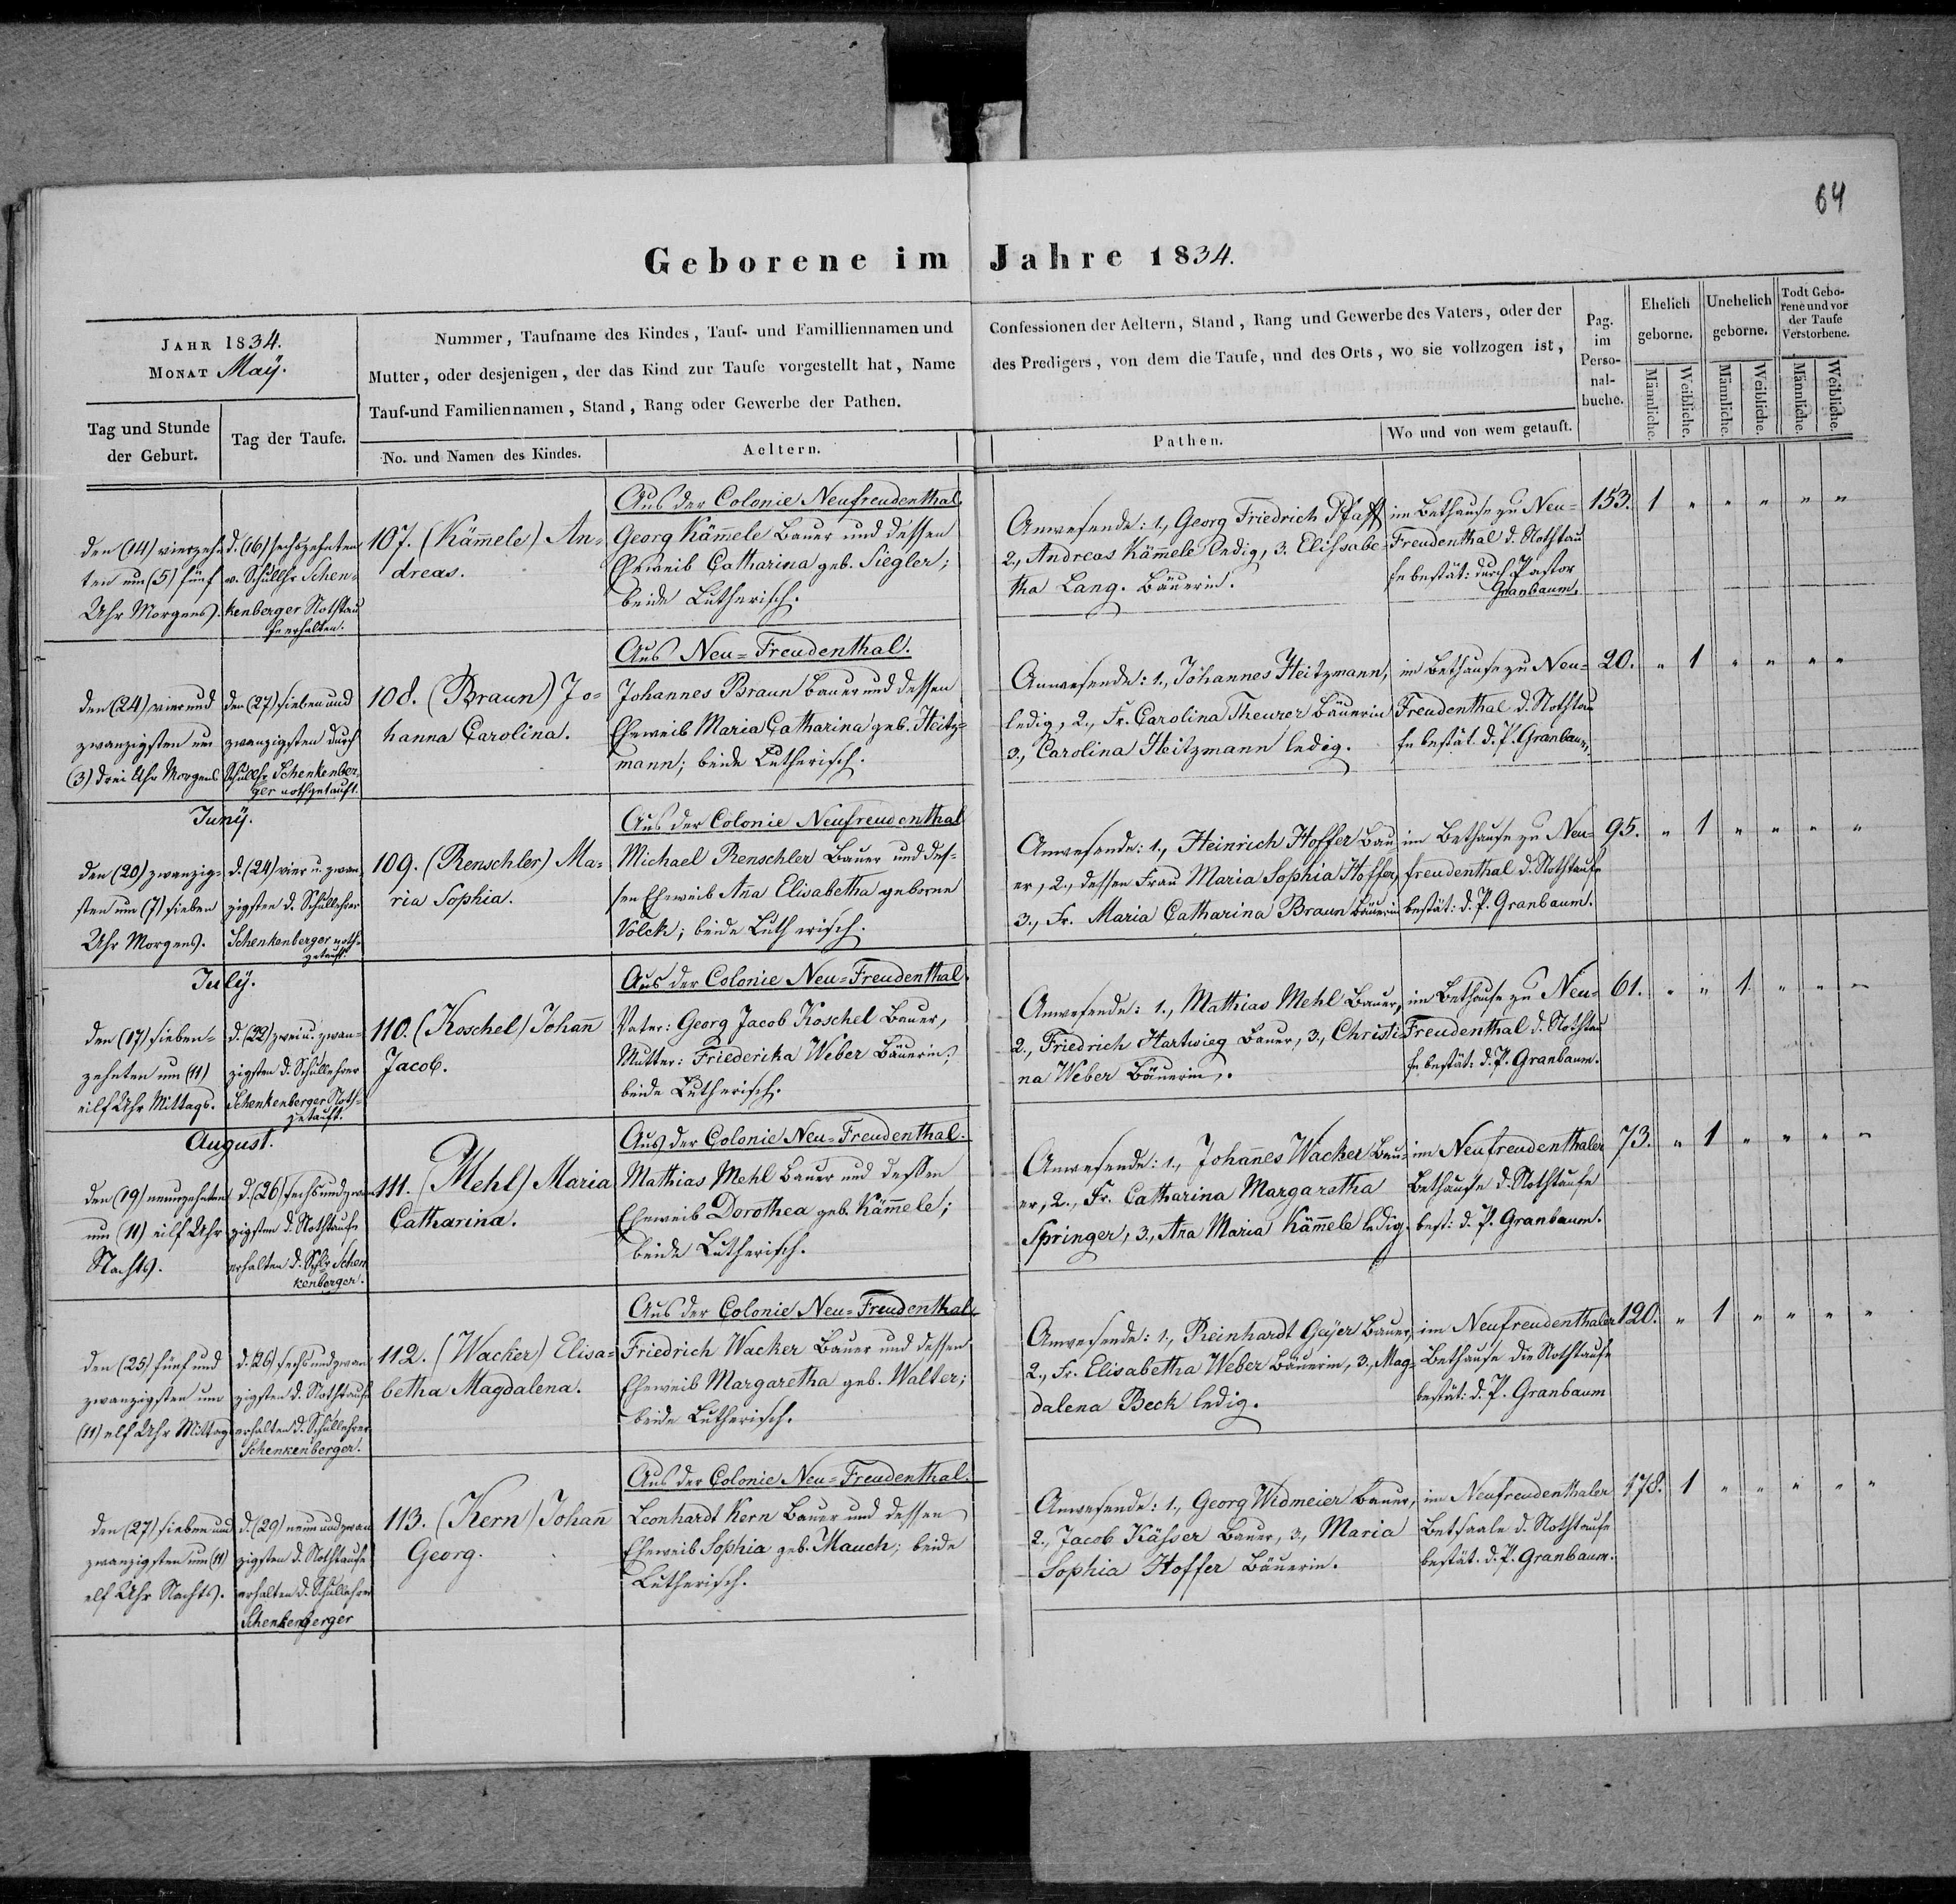 64
Geborene im Jahre 1834.
JAHR 1834.
MONAT Maÿ.
Tag und Stunde
der Geburt.
Tag der Taufe.
Nummer, Taufname des Kindes, Tauf- und Familliennamen und
Mutter, oder desjenigen, der das Kind zur Taufe vorgestellt hat, Name
Tauf-und Familiennamen, Stand, Rang oder Gewerbe der Pathen.
No. und Namen des Kindes.
Aeltern.
Confessionen der Aeltern, Stand, Rang und Gewerbe des Vaters, oder der
des Predigers, von dem die Taufe, und des Orts, wo sie vollzogen ist,
Pathen.
Wo und von wem getauft.
Pag.
im
Perso-
nal-
buche.
Ehelich
geborne.
Unehelich
geborne.
Todt Gebo-
rene und vor
der Taufe
Verstorbene.
Männliche.
Weibliche.
Männliche.
Weibliche.
Männliche.
Weibliche.
den (14) vierzehn
ten um (5) fünf
Uhr Morgens.
d. (16) sechszehnten
v. Schullhr Schen-
kenberger Nothtau
fe erhalten.
107. (Kam̄ele) An-
dreas.
Aus der Colonie Neufreudenthal.
Georg Kam̄ele Bauer und dessen
Eheweib Catharina geb. Siegler;
beide Lutherisch.
Anwesende: 1., Georg Friedrich Pfaff
2., Andreas Kam̄ele ledig, 3. Elissabe-
tha Lang. Bäuerin.
im Bethause zu Neu-
Freudenthal d. Nothtau
fe bestät: durch Pastor
Granbaum.
153. 1 " " " " "
den (24) vier und
zwanzigsten um
(3) drei Uhr Morgens
den (27) sieben und
zwanzigsten durch
Schullhr Schenkenber-
ger nothgetauft.
108. (Braun) Jo-
hanna Carolina.
Aus Neu-Freudenthal.
Johannes Braun Bauer und dessen
Eheweib Maria Catharina geb. Heitz-
mann; beide Lutherisch.
Anwesende: 1., Johannes Heitzmann,
ledig, 2., Fr. Carolina Theurer Bäuerin
3., Carolina Heitzmann ledig.
im Bethause zu Neu-
Freudenthal d. Nothtau
fe bestät. d. P. Granbaum.
20. " 1 " " " "
Junÿ.
den (20) zwanzig-
sten um (7) sieben
Uhr Morgens.
d. (24) vier u. zwan
zigsten d. Schullehrer
Schenkenberger noth-
getauft.
109. (Renschler) Ma-
ria Sophia.
Aus der Colonie Neufreudenthal
Michael Renschler Bauer und des-
sen Eheweib An̄a Elisabetha geborne
Volck; beide Lutherisch.
Anwesende: 1., Heinrich Hoffer Bau
er, 2., dessen Frau Maria Sophia Hoffer,
3., Fr. Maria Catharina Braun Bäuerin
im Bethause zu Neu-
freudenthal d. Nothtaufe
bestät: d. P. Granbaum.
95. " 1 " " " "
Julÿ.
den (17) sieben-
zehnten um (11)
eilf Uhr Mittags.
d. (22) zwei u. zwan-
zigsten d. Schullehrer
Schenkenberger Noth-
getauft.
110. (Koschel) Johan̄
Jacob.
Aus der Colonie Neu-Freudenthal.
Vater: Georg Jacob Koschel Bauer,
Mutter: Friederika Weber Bäuerin;
beide Lutherisch.
Anwesende: 1., Mathias Mehl Bauer,
2., Friedrich Hartwieg Bauer, 3., Christi
na Weber Bäuerin.
im Bethause zu Neu-
Freudenthal d. Nothtau
fe bestät: d. P. Granbaum.
61. " " 1 " " "
August.
den (19) neunzehnten
um (11) eilf Uhr
Nachts.
d. (26) sechs und zwan
zigsten d. Nothtaufe
erhalten d. Schlr Schen
kenberger.
111. (Mehl) Maria
Catharina.
Aus der Colonie Neu-Freudenthal.
Mathias Mehl Bauer und dessen
Eheweib Dorothea geb. Kam̄ele;
beide Lutherisch.
Anwesende: 1., Johan̄es Wacker Bau-
er, 2., Fr. Catharina Margaretha
Springer, 3., An̄a Maria Kam̄ele ledig.
im Neufreudenthaler
Bethause d. Nothtaufe
best: d. P. Granbaum.
73. " 1 " " " "
den (25) fünf und
zwanzigsten um
(11) elf Uhr Mittag
d. (26) sechs und zwan
zigsten d. Nothtaufe
erhalten d. Schullehrer
Schenkenberger.
112. (Wacker) Elisa-
betha Magdalena.
Aus der Colonie Neu-Freudenthal
Friedrich Wacker Bauer und dessen
Eheweib Margaretha geb. Walter;
beide Lutherisch.
Anwesende: 1., Reinhardt Geÿer Bauer,
2., Fr. Elisabetha Weber Bäuerin, 3., Mag-
dalena Beck ledig.
im Neufreudenthaler
Bethause die Nothtaufe
bestät: d. P. Granbaum
120. " 1 " " " "
den (27) sieben und
zwanzigsten um (11)
elf Uhr Nachts.
d. (29) neun und zwan
zigsten d. Nothtaufe
erhalten d. Schullehrer
Schenkenberger
113. (Kern) Johan̄
Georg.
Aus der Colonie Neu-Freudenthal.
Leonhardt Kern Bauer und dessen
Eheweib Sophia geb. Mauch; beide
Lutherisch.
Anwesende: 1., Georg Widmeier Bauer,
2., Jacob Kässer Bauer, 3., Maria
Sophia Hoffer Bäuerin.
im Neufreudenthaler
Betsaale d. Nothtaufe
bestät. d. P. Granbaum.
178. 1 " " " " "